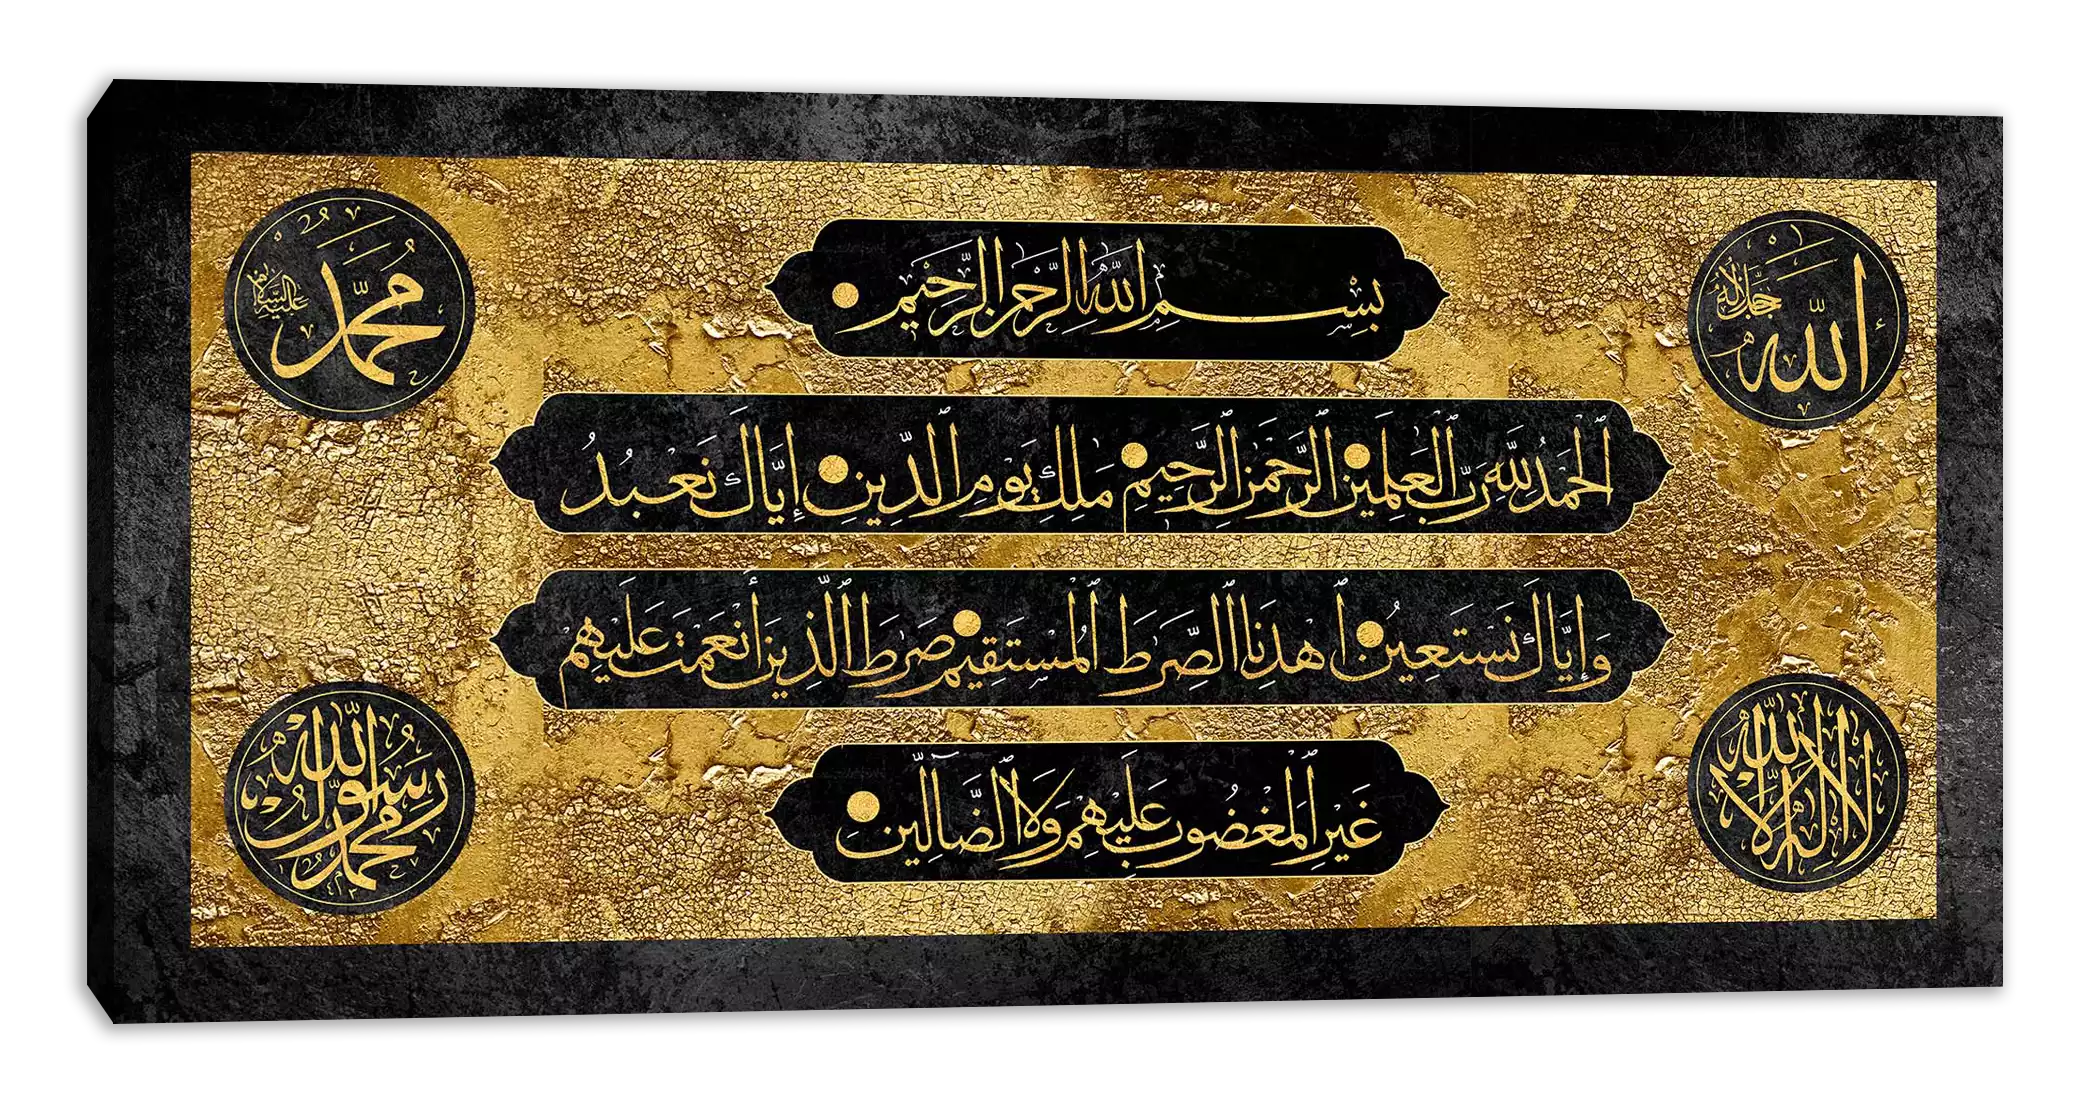 الله جل جلاله
محمد عليه السلام
بِسْمِ اللَّهِ الرَّحْمَنِ الرَّحِيمِ
ٱلْحَمْدُ لِلَّهِ رَبِّ ٱلْعَٰلَمِينَ ٱلرَّحْمَٰنِ ٱلرَّحِيمِ مَٰلِكِ يَوْمِ ٱلدِّينِ إِيَّاكَ نَعْبُدُ
وَإِيَّاكَ نَسْتَعِينُ ٱهْدِنَا ٱلصِّرَٰطَ ٱلْمُسْتَقِيمَ صِرَٰطَ ٱلَّذِينَ أَنْعَمْتَ عَلَيْهِمْ
غَيْرِ ٱلْمَغْضُوبِ عَلَيْهِمْ وَلَا ٱلضَّآلِّينَ
لا إله إلا الله
محمد رسول الله